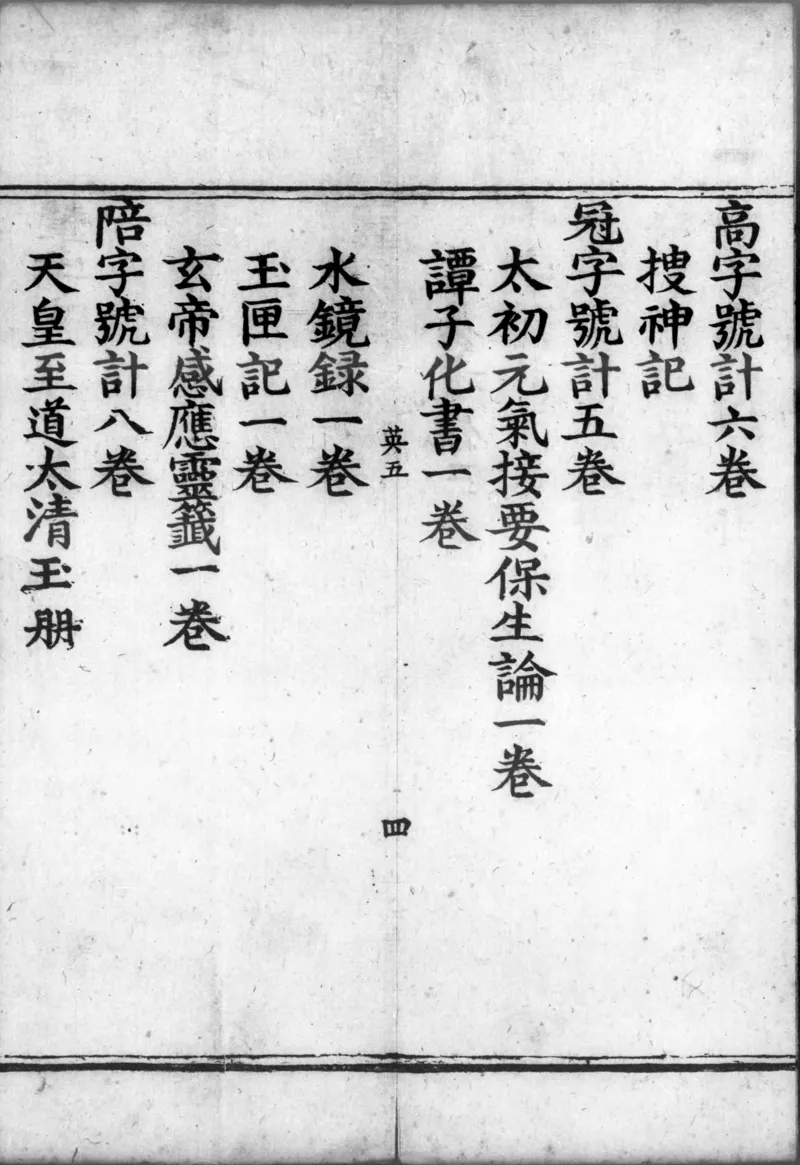 高字號計六卷
搜神記
冠字號計五卷
太初元氣接要保生論一卷
譚子化書一卷
英五
四
水鏡録一卷
玉匣記一卷
玄帝感應靈籤一卷
陪字號計八卷
天皇至道太清玉册